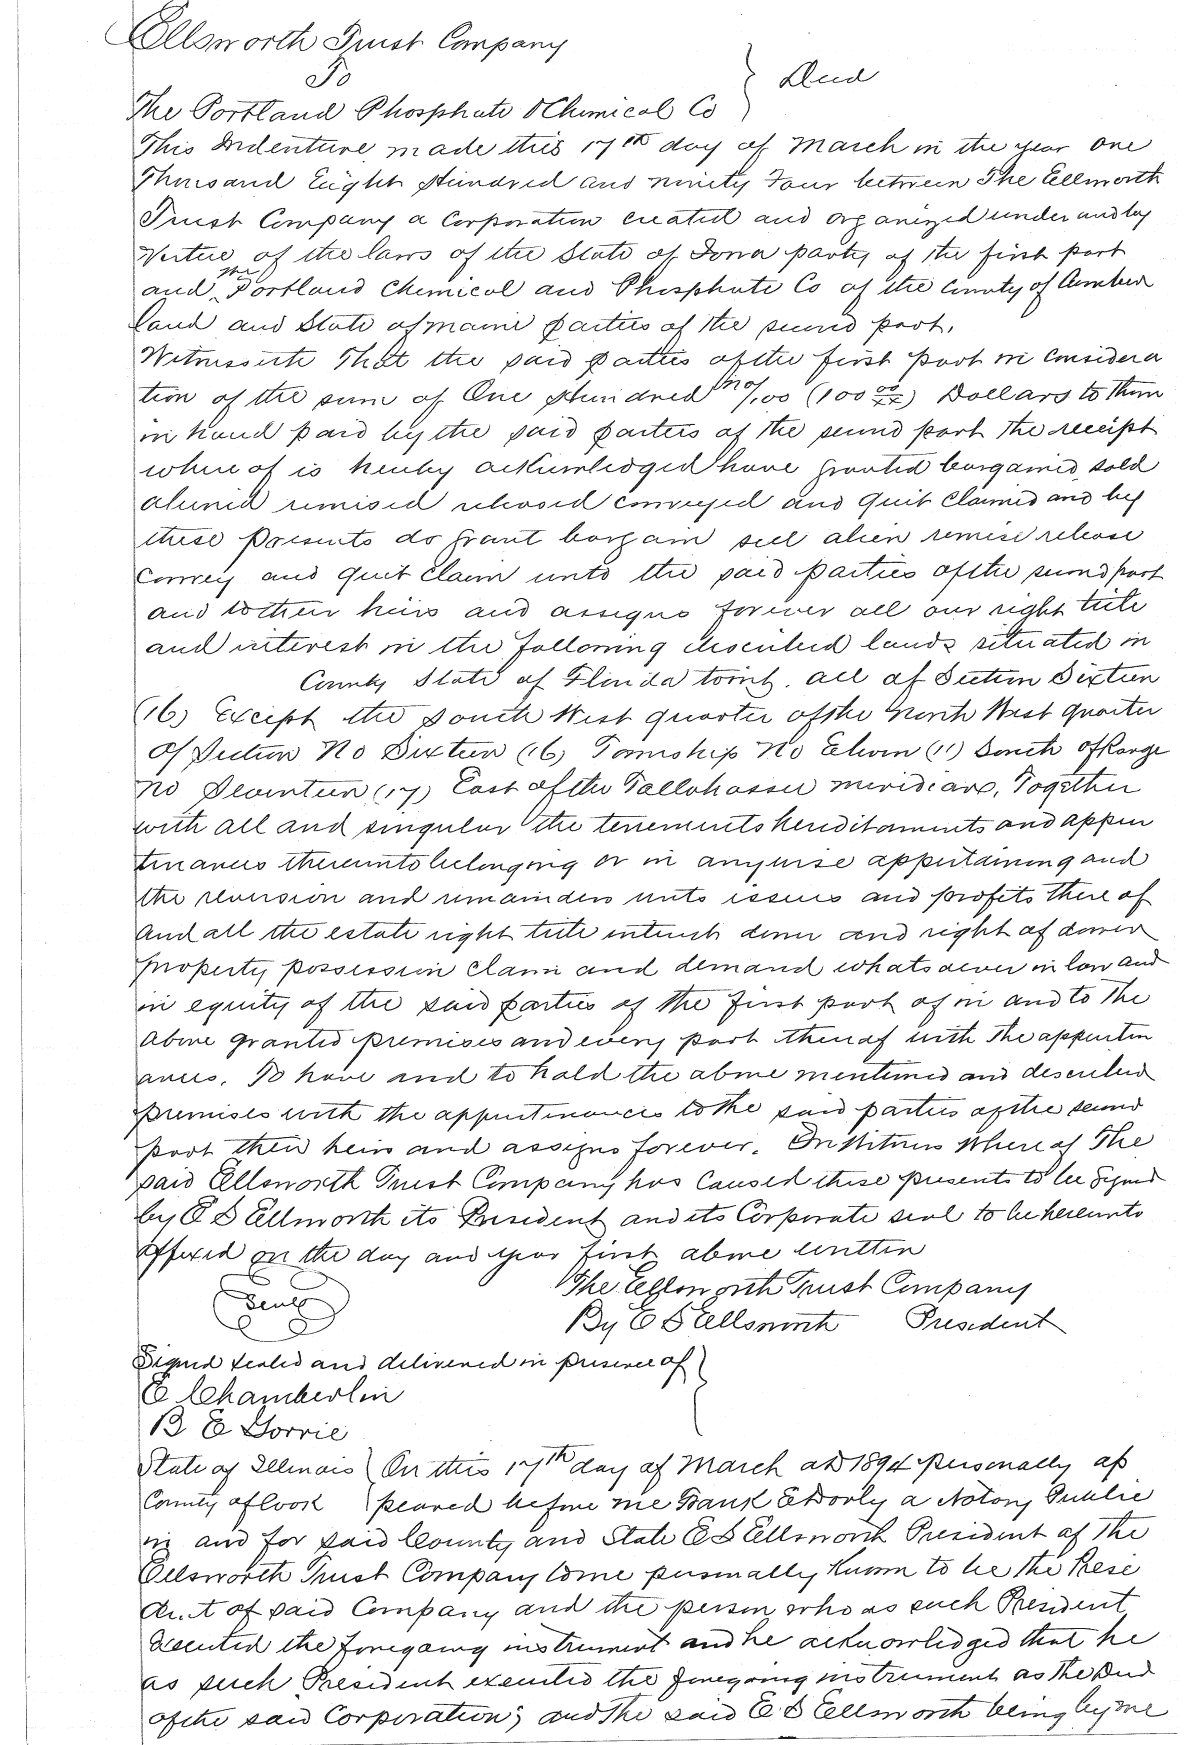 Ellsworth Trust Company
To
Deed
The Portland Phosphate & Chemical Co
This Indenture made this 17th day of March in the year one
Thousand Eight Hundred and ninety Four between The Ellsworth
Trust Company a Corporation created and organized under and by
Vertue of the laws of the State of Iowa party of the first part
and the Portland Chemical and Phosphate Co of the County of Cumber
land and State of Maine parties of the second part.
Witnesseth That the said parties of the first part in considera
tion of the sum of One Hundred no/100 (100 00/xx) Dollars to them
in hand paid by the said parties of the second part the receipt
where of is hereby acknowledged have granted bargained sold
aliened remised released conveyed and quit claimed and by
these presents do grant bargain sell alien remise release
Convey and quit claim unto the said parties of the second part
and to their heirs and assigns forever all our right title
and interest in the following described lands situated in
County State of Florida towit. all of Section Sixteen
(16) Except the South West quarter of the North West quarter
of Section No Sixteen (16) Township No Eleven (11) South of Range
No Seventeen (17) East of the Tallahassee meridian. Together
with all and singular the tenements hereditaments and appur
tenances thereunto belonging or in anywise appertaining and
the reversion and remainders issues and profits there of
And all the estate right title interest dower and right of dower
property possession claim and demand whatsoever in law and
in equity of the said parties of the first part of in and to the
above granted premises and every part thereof with the appurten
ances. To have and to hold the above mentioned and described
premises with the appurtenances to the said parties of the second
part their heirs and assigns forever. In Witness Where of The
said Ellsworth Trust Company has caused these presents to be signed
by E S Ellsworth its President and its Corporate seal to be hereunto
affixed on the day and year first above written
The Ellsworth Trust Company
Seal
By E S Ellsworth President
Signed sealed and delivered in presence of
E Chamberlin
B E Gorrie
State of Illinois On this 17th day of March AD 1894 personally ap
County of Cook peared before me Frank a Notary Public
in and for said County and State E S Ellsworth President of The
Ellsworth Trust Company to me personally known to be the Presi
dent of said Company and the person who as such President
executed the foregoing instrument and he acknowledged that he
as such President executed the foregoing instrument as the Deed
of the said Corporation; and the said E S Ellsworth being by me